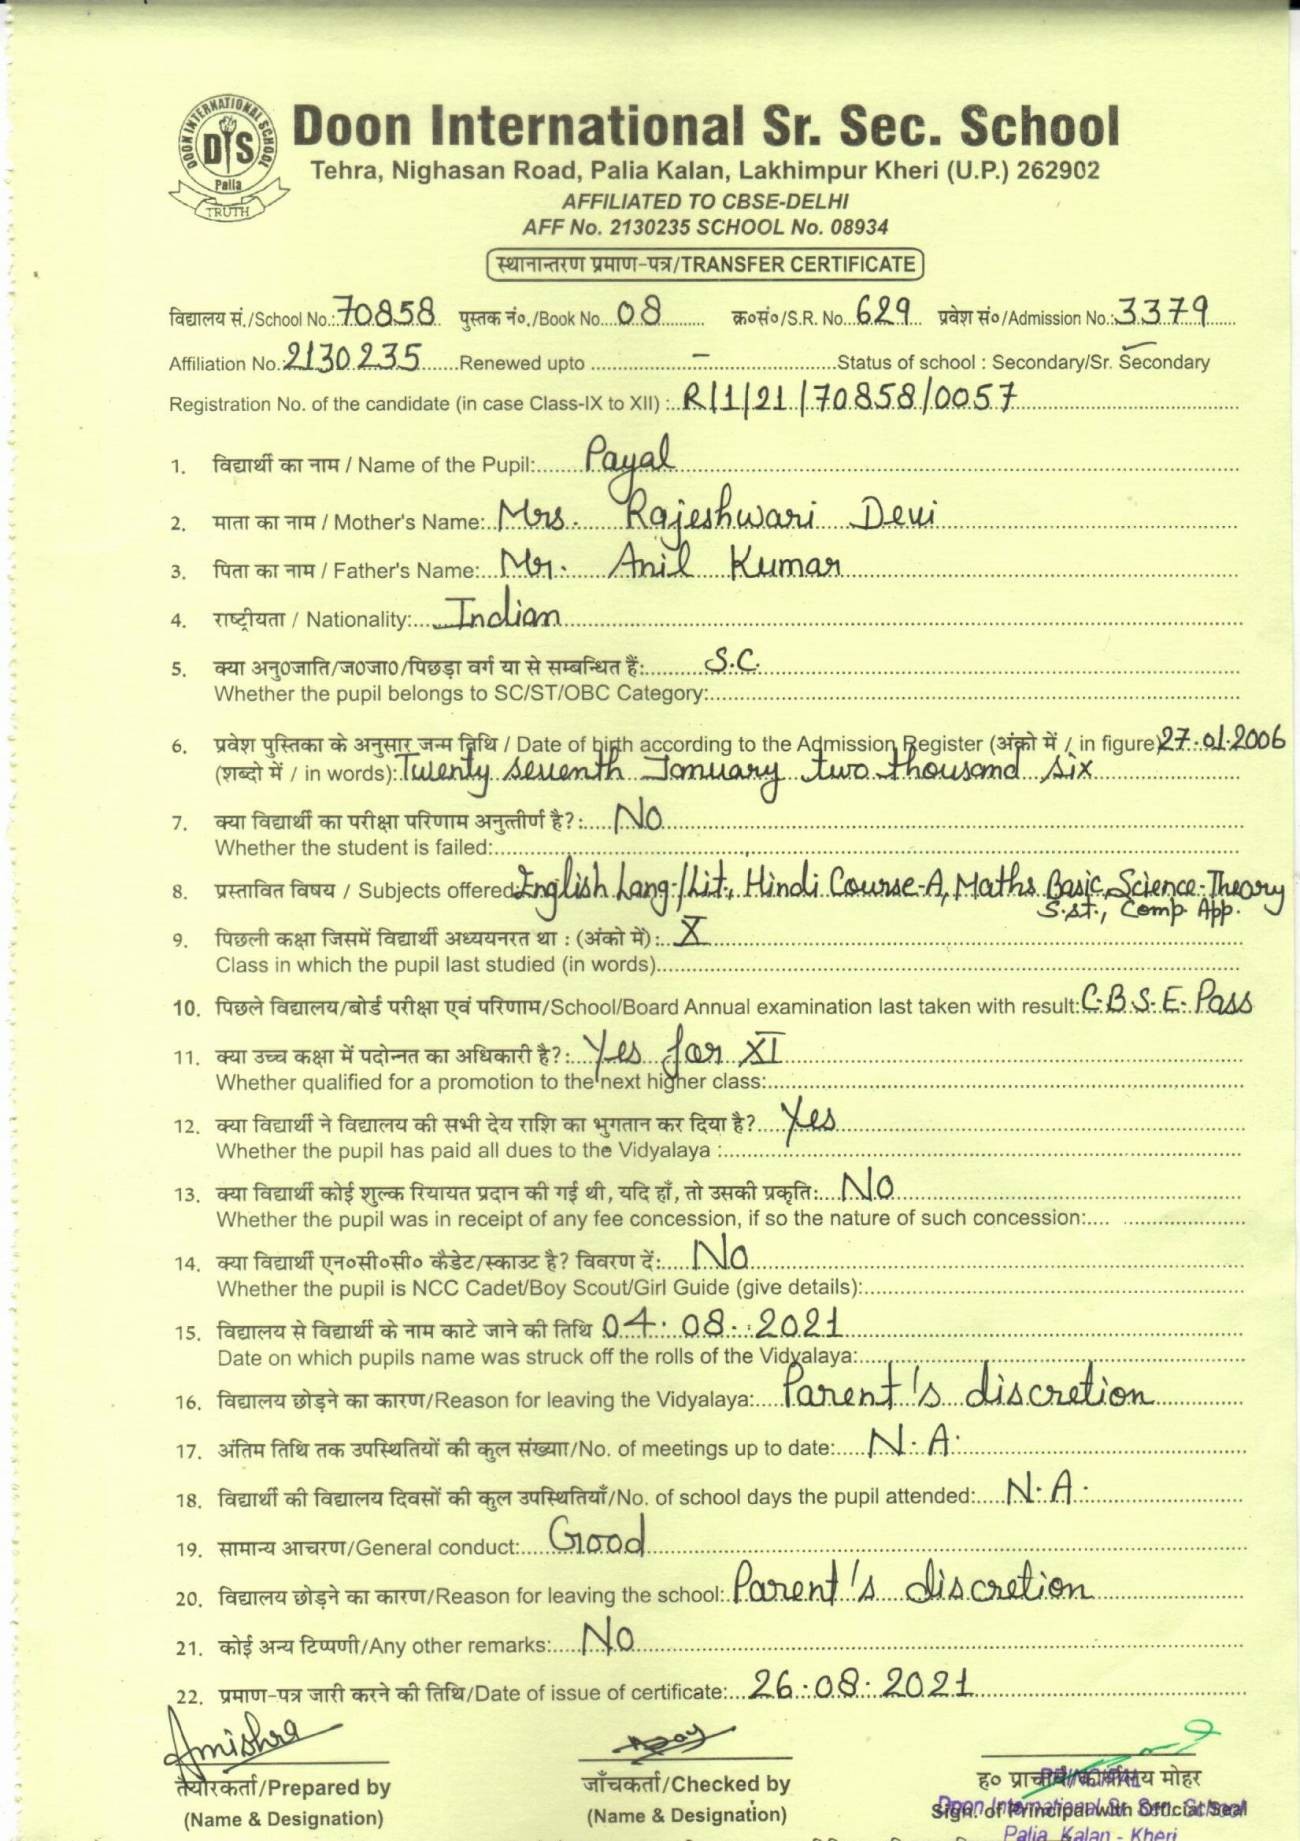 DOON INTERNATIONAL SCHOOL
DIS
Palia
TRUTH
Doon International Sr. Sec. School
Tehra, Nighasan Road, Palia Kalan, Lakhimpur Kheri (U.P.) 262902
AFFILIATED TO CBSE-DELHI
AFF No. 2130235 SCHOOL No. 08934
स्थानान्तरण प्रमाण-पत्र/TRANSFER CERTIFICATE
विद्यालय सं./School No.: 70858 पुस्तक नं०./Book No. 08 क्र०सं०/S.R. No. 629 प्रवेश सं०/Admission No.: 3379
Affiliation No.: 2130235 Renewed upto – Status of school : Secondary/Sr. Secondary
Registration No. of the candidate (in case Class-IX to XII) : R/1/21/70858/0057
1. विद्यार्थी का नाम / Name of the Pupil: Payal
2. माता का नाम / Mother's Name: Mrs. Rajeshwari Devi
3. पिता का नाम / Father's Name: Mr. Anil Kumar
4. राष्ट्रीयता / Nationality: Indian
5. क्या अनु०जाति/ज०जा०/पिछड़ा वर्ग या से सम्बन्धित हैं: S.C.
Whether the pupil belongs to SC/ST/OBC Category:
6. प्रवेश पुस्तिका के अनुसार जन्म तिथि / Date of birth according to the Admission Register (अंको में / in figure) 27.01.2006
(शब्दो में / in words): Twenty seventh January two thousand six
7. क्या विद्यार्थी का परीक्षा परिणाम अनुत्तीर्ण है?: No
Whether the student is failed:
8. प्रस्तावित विषय / Subjects offered: English Lang./Lit., Hindi Course-A, Maths Basic, Science-Theory
S.st., Comp. App.
9. पिछली कक्षा जिसमें विद्यार्थी अध्ययनरत था : (अंको में): X
Class in which the pupil last studied (in words)
10. पिछले विद्यालय/बोर्ड परीक्षा एवं परिणाम/School/Board Annual examination last taken with result: C.B.S.E. Pass
11. क्या उच्च कक्षा में पदोन्नत का अधिकारी है?: Yes for XI
Whether qualified for a promotion to the next higher class:
12. क्या विद्यार्थी ने विद्यालय की सभी देय राशि का भुगतान कर दिया है? Yes
Whether the pupil has paid all dues to the Vidyalaya :
13. क्या विद्यार्थी कोई शुल्क रियायत प्रदान की गई थी, यदि हाँ, तो उसकी प्रकृति: No
Whether the pupil was in receipt of any fee concession, if so the nature of such concession:
14. क्या विद्यार्थी एन०सी०सी० कैडेट/स्काउट है? विवरण दें: No
Whether the pupil is NCC Cadet/Boy Scout/Girl Guide (give details):
15. विद्यालय से विद्यार्थी के नाम काटे जाने की तिथि 04.08.2021
Date on which pupils name was struck off the rolls of the Vidyalaya:
16. विद्यालय छोड़ने का कारण/Reason for leaving the Vidyalaya: Parent's discretion
17. अंतिम तिथि तक उपस्थितियों की कुल संख्या/No. of meetings up to date: N.A.
18. विद्यार्थी की विद्यालय दिवसों की कुल उपस्थितियाँ/No. of school days the pupil attended: N.A.
19. सामान्य आचरण/General conduct: Good
20. विद्यालय छोड़ने का कारण/Reason for leaving the school: Parent's discretion
21. कोई अन्य टिप्पणी/Any other remarks: No
22. प्रमाण-पत्र जारी करने की तिथि/Date of issue of certificate: 26.08.2021
Amishra
तैयारकर्ता/Prepared by जाँचकर्ता/Checked by ह० प्राचार्य/कार्यालय मोहर
PRINCIPAL
(Name & Designation) (Name & Designation) Sign. of Principal with Official Seal
Doon International Sr. Sec. School
Palia Kalan - Kheri